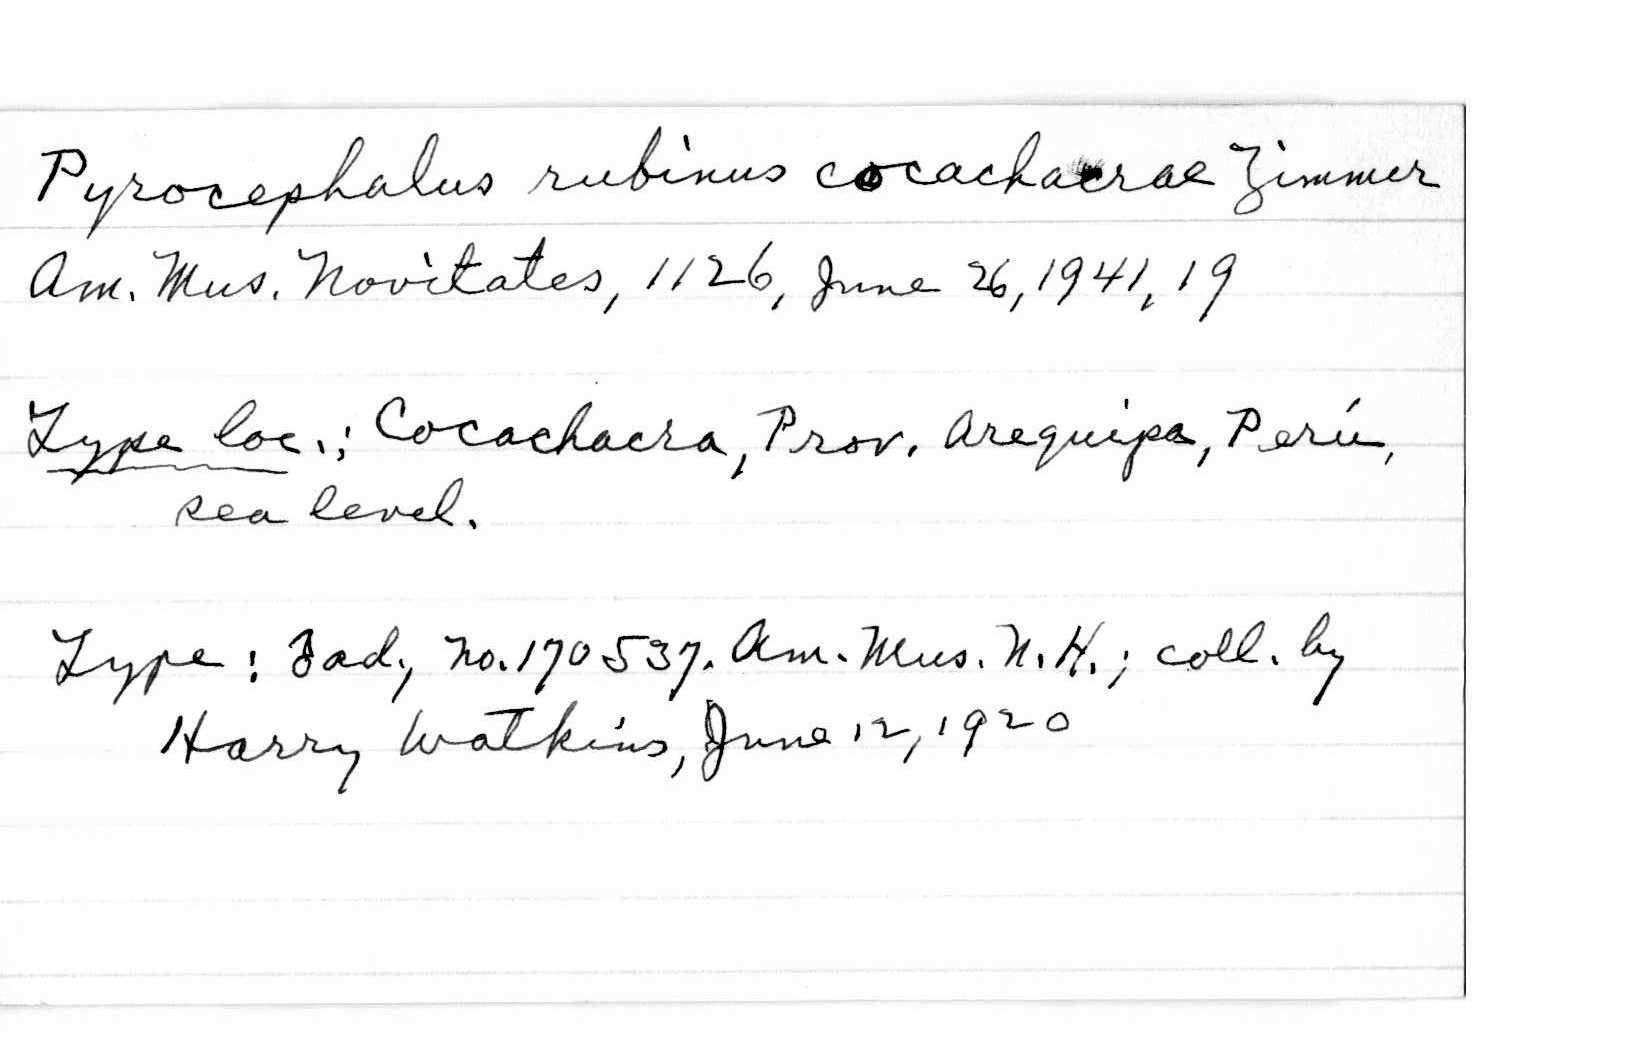 Pyrocephalus rubinus cocachacrae Zimmer
Am. Mus. Novitates, 1126, June 26, 1941, 19
Type loc.: Cocachacra, Prov. Arequipa, Perú,
sea level.
Type: ad., No. 170537. Am. Mus. N. H.; coll. by
Harry Watkins, June 12, 1920